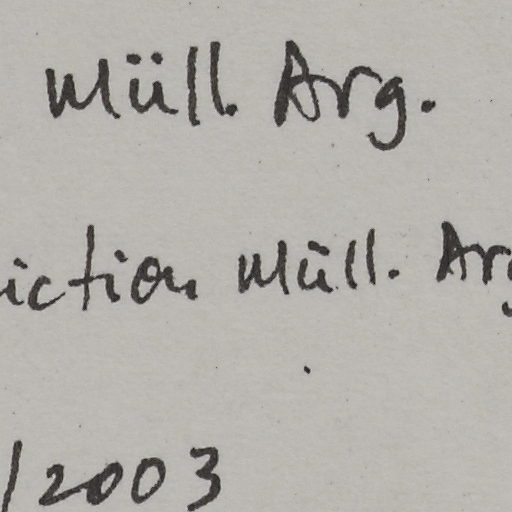 Müll. Arg.
iction Müll. Arg
/2003